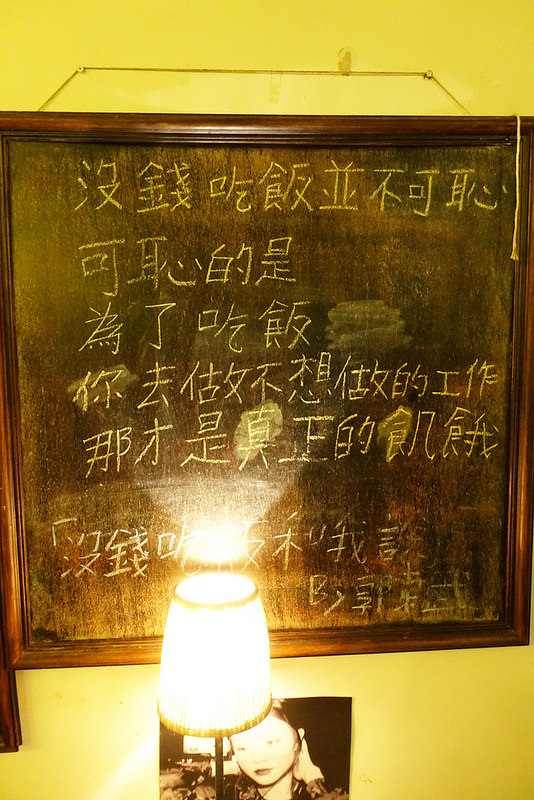 沒錢吃飯並不可恥
可恥的是
為了吃飯
你去做不想做的工作
那才是真正的飢餓
「沒錢吃飯和我說
By 郭